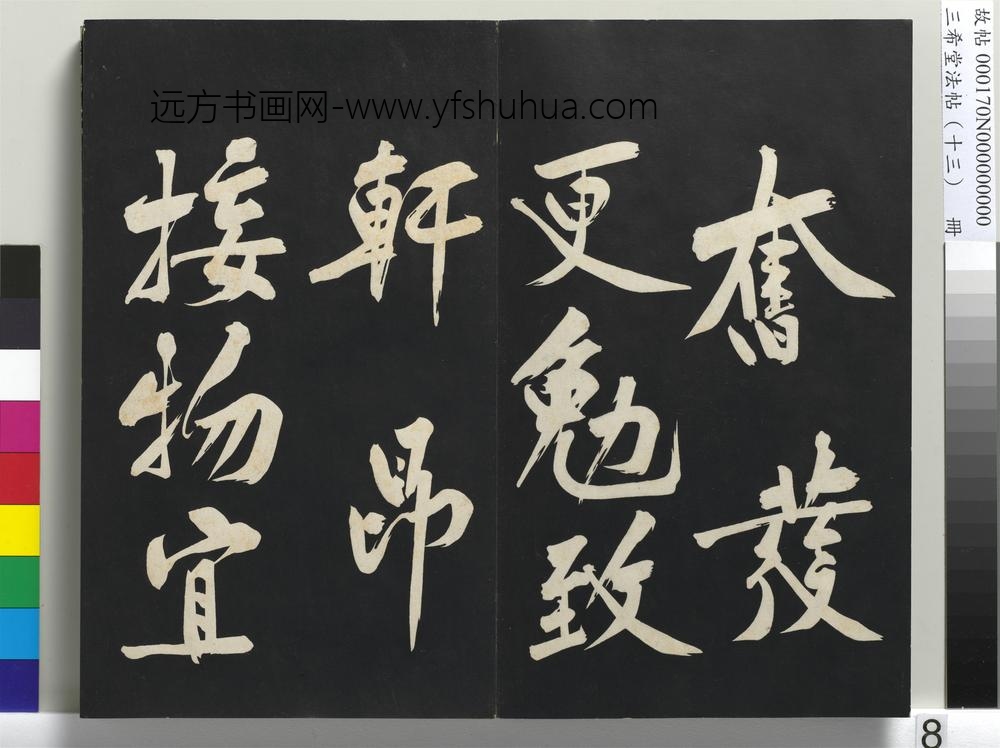 奮發
更勉致
軒昂
接物宜
远方书画网-www.yfshuhua.com
故帖 000170N000000000
三希堂法帖(十三) 冊
8